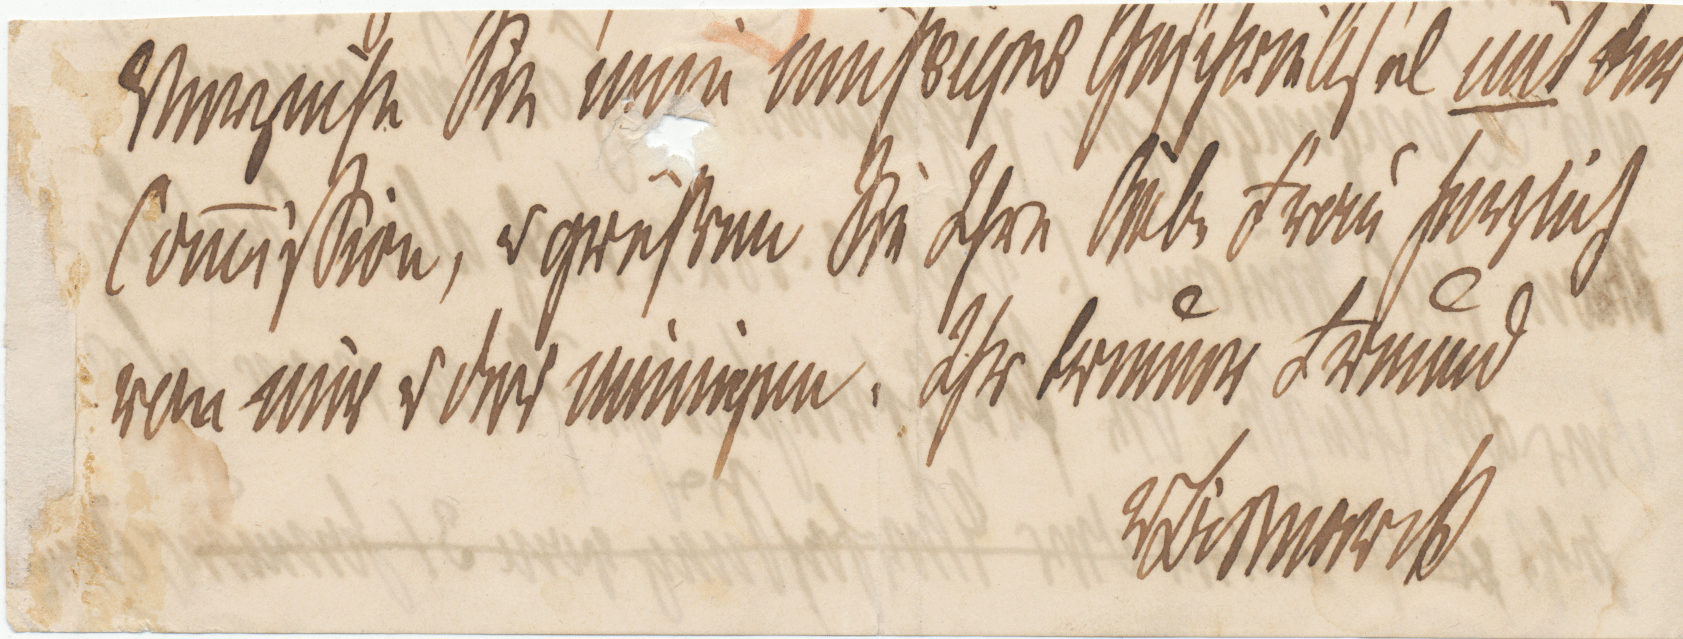 Verzeihn Sie mein müßiges Geschreibsel mit der
Commission, u grüßen Sie Ihre liebe Frau herzlich
von mir u der meinigen. Ihr treuer Freund
vBismarck